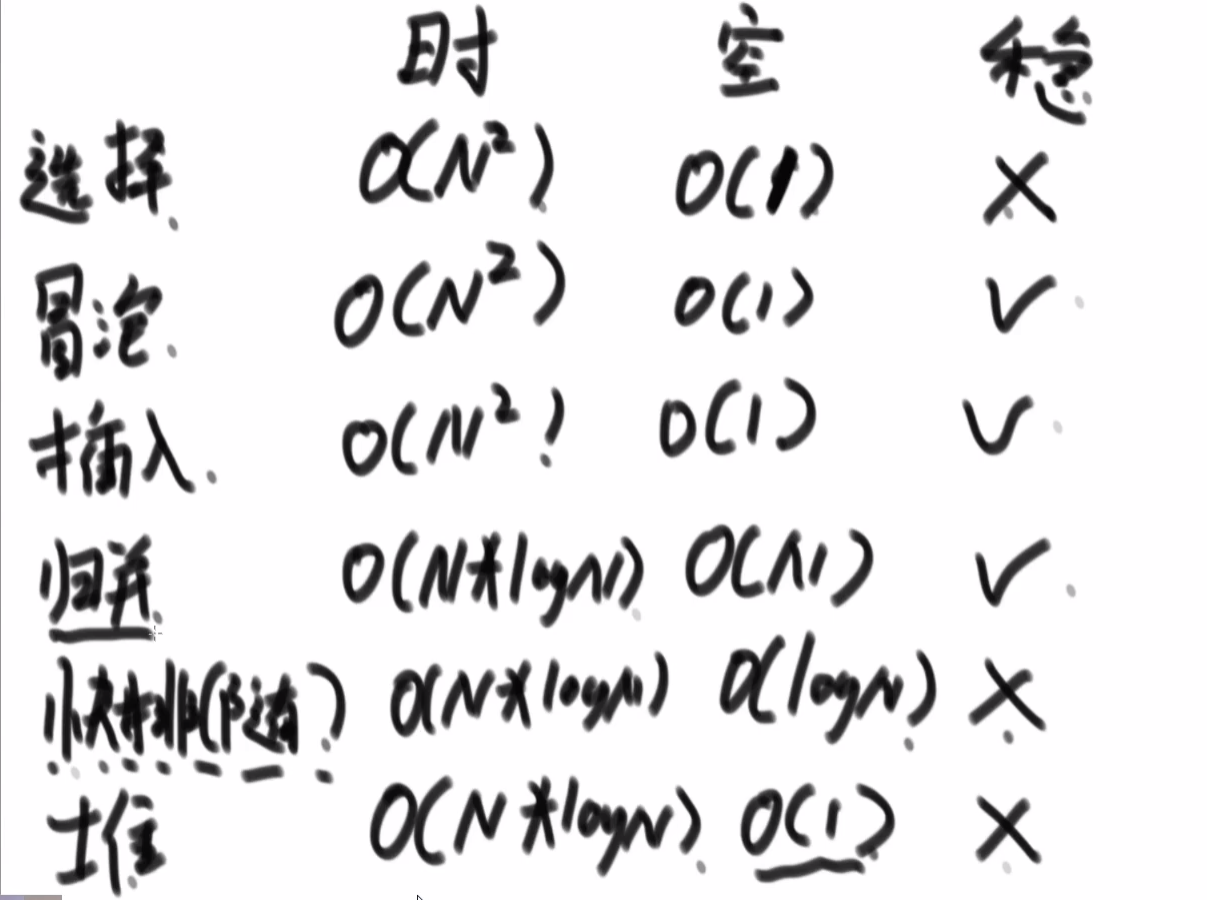 时 空 稳
选择 O(N²) O(1) ×
冒泡 O(N²) O(1) √
插入 O(N²) O(1) √
归并 O(N*logN) O(N) √
快排(随) O(N*logN) O(logN) ×
堆 O(N*logN) O(1) ×